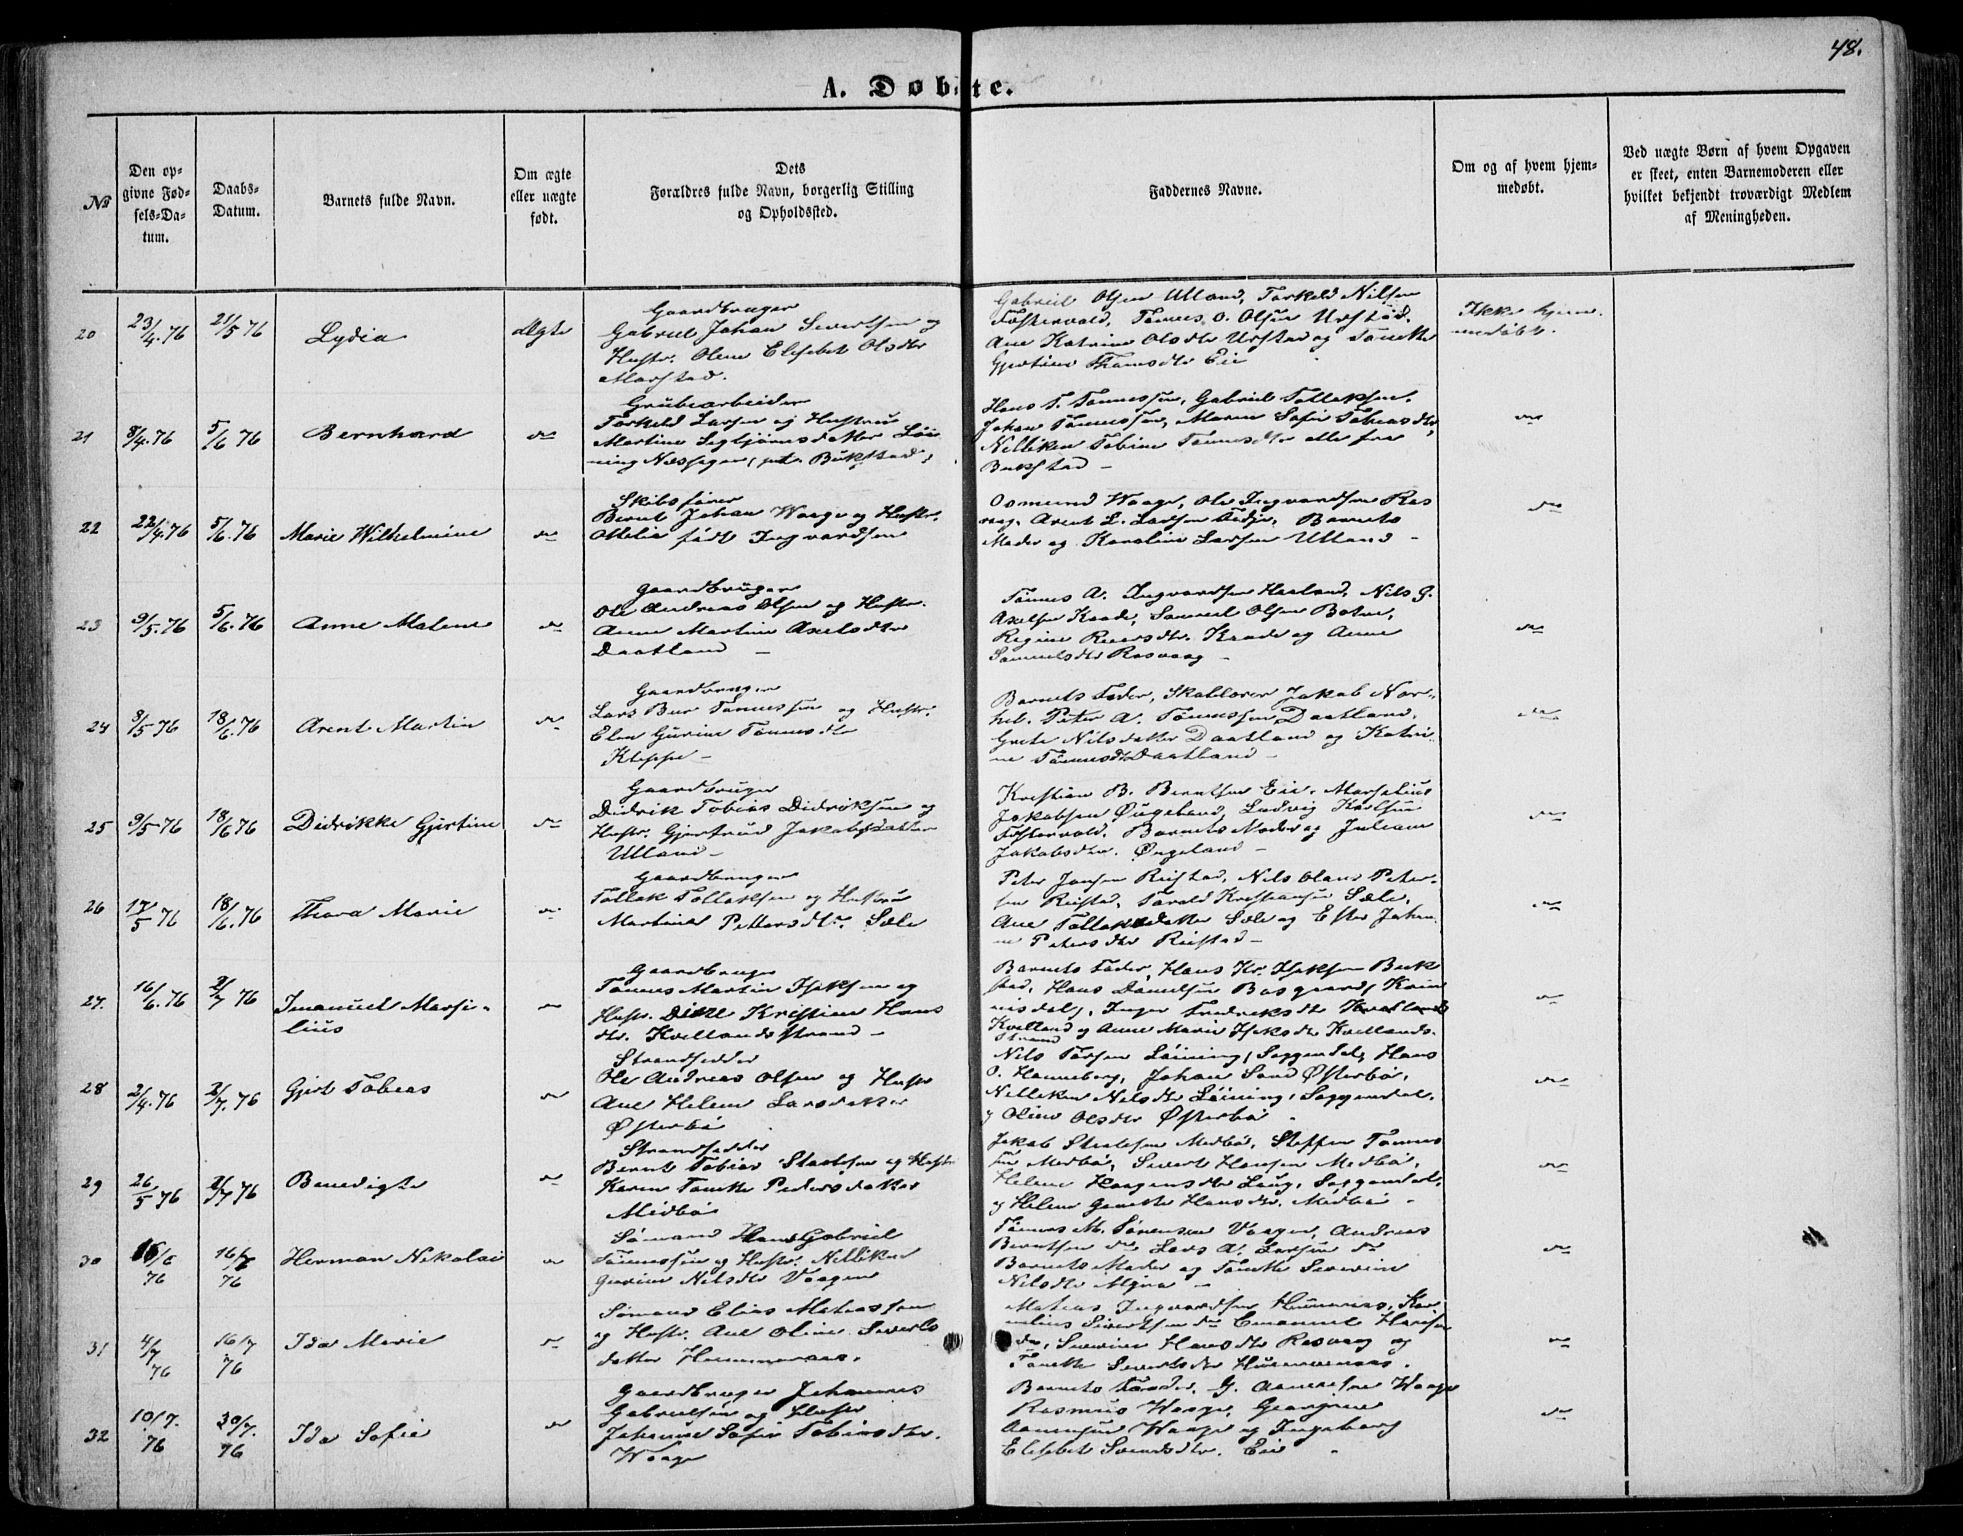 48.
A. Døbte.
No
Den op-
givne Fød-
sels-Da-
tum.
Daabs-
Datum.
Barnets fulde Navn.
Om ægte
eller uægte
født.
Dets
Forældres fulde Navn, borgerlig Stilling
og Opholdssted.
Faddernes Navne.
Om og af hvem hjem-
medøbt.
Ved uægte Børn af hvem Opgaven
er skeet, enten Barnemoderen eller
hvilket bekjendt troværdigt Medlem
af Menigheden.
20
23/4.76
21/5 76
Lydia
Ægte
Gaardbruger
Gabriel Johan Sivertsen og
Hustr. Olene Elisebet Olsdtr
Marstad.
Gabriel Olsen Ulland, Torkeld Nilsen
Fostervold, Tønnes O. Olsen Urstad,
Ane Katrine Olsdtr Urstad og Tonette
Gjertine Thomsdtr Eie
Ikke hjem-
medøbt.
21
8/4.76
5/6 76
Bernhard
do
Grubearbeider
Torkeld Larsen og Hustru
Martine Segbjørnsdatter
Bukstad
Hans T. Tønnessen, Gabriel Tollaksen,
Johan Tønnessen, Maren Sofie Tobiasdtr,
Nelliken Tobine Tønnesdtr alle fra
Bukstad –
do
22
22/4.76
5/6.76
Marie Wilhelmine
do
Skibsfører
Bernt Johan Waage og Hustr.
Otelie født Ingvardsen
Osmund Waage, Ole Ingvardsen Ras
vaag, Arent L. Larsen Fidje, Barnets
Moder og Karoline Larsen Ulland –
do
23
9/5.76
5/6.76
Anne Malene
do
Gaardbruger
Ole Andreas Olsen og Hustr.
Anne Martine Axelsdtr
Daatland –
Tønnes A. Ingvardsen Haaland, Nils G.
Axelsen Kaade, Samuel Olsen Botne,
Regine Reiersdtr. Kaade og Anne
Samuelsdtr Rasvaag –
do
24
8/5 76
18/6.76
Arent Martin
do
Gaardbruger
Lars Bur Tønnessen og Hustr.
Elen Gurine Tønnesdtr
Kleppe –
Barnets Fader, Skolelærer Jakob
Peter A. Tønnessen Daatland,
Grete Nilsdatter Daatland og Katri-
ne Tønnesdtr Daatland –
do
25
9/5 76
18/6 76
Didrikke Gjertine
do
Gaardbruger
Didrik Tobias Didriksen og
Hustr. Gjertrud Jakobsdatter
Ulland –
Kristian B. Berntsen Eie, Marselius
Jakobsen Øygeland, Ludvig Karlsen
Fostervold, Barnets Moder og Juliane
Jakobsdtr. Øygeland –
do
26
17/5 76
18/6.76
Thora Marie
do
Gaardbruger
Tollak Tollaksen og Hustru
Martine Pettersdtr. Sæle
Peter Jansen Reistad, Nils Olaus Peter-
sen Reistad, Torald Kristiansen Sæle,
Ane Tollaksdatter Sæle og Ester Johan-
ne Petersdtr Reistad –
do
27.
16/6.76
2/7 76
Imanuel Marsi-
lius
do
Gaardbruger
Tønnes Martin Isaksen og
Hustr. Dine Kristine Hans
dtr. Kvellandsstrand –
Barnets Fader, Hans Kr. Isaksen Buk
stad, Hans Danielsen
Inger Fredriksdtr
Kvelland og Anne Marie Isaksdtr Kvellands-
strand
do
28
2/4.76
2/7.76
Gjert Tobias
do
Strandsidder
Ole Andreas Olsen og Hustr
Ane Helene Larsdatter
Østerbø
Nils Torsen Løining, Soggendal, Hans
O. Hanneberg, Johan Sand Østerbø,
Nelliken Nilsdtr Løining, Soggendal,
og Oline Olsdtr Østerbø.
do
29
26/5 76
2/7 76
Benedigte
do
Strandsidder
Bernt Tobias Staalesen og Hustr
Karen Tonette Pedersdatter
Midbø
Jakob Staalesen Midbø, Steffen Tønnes
sen Midbø, Sivert Hansen Midbø,
Helene Haagensdtr Soggendal,
og Helene Hansdtr. Midbø –
do
30
16/6
76
16/7
76
Herman Nikolai
do
Sømand Hans Gabriel
Tønnessen og Hustr. Nelliken
Gurine Nilsdtr Vaagen
Tønnes M. Sørensen Vaagen, Andreas
Berntsen do Lars A. Larsen do
Barnets Moder og Tonette Severine
Nilsdtr
do
31
4/7
76
16/7
76
Ida Marie
do
Sømand Elias Matiassen
og Hustr. Ane Oline Siverts
datter Hummeraas.
Matias Ingvardsen Hummeraas, Kor
nelius Sivertsen do Emanuel Hansen
do, Severine Hansdtr Rasvaag og
Tonette Sivertsdtr Hummeraas.
do
32
10/7.
76
30/7.
76
Ida Sofie
do
Gaardbruger Johannes
Gabrielsen og Hustr
Johanne Sofie Tobiasdtr.
Waage
Barnets Fader, G. Aanensen Waage
Rasmus Waage, Georgine
Aanensen Waage og Ingeborg
Elisebet Svendsdtr. Eie
do